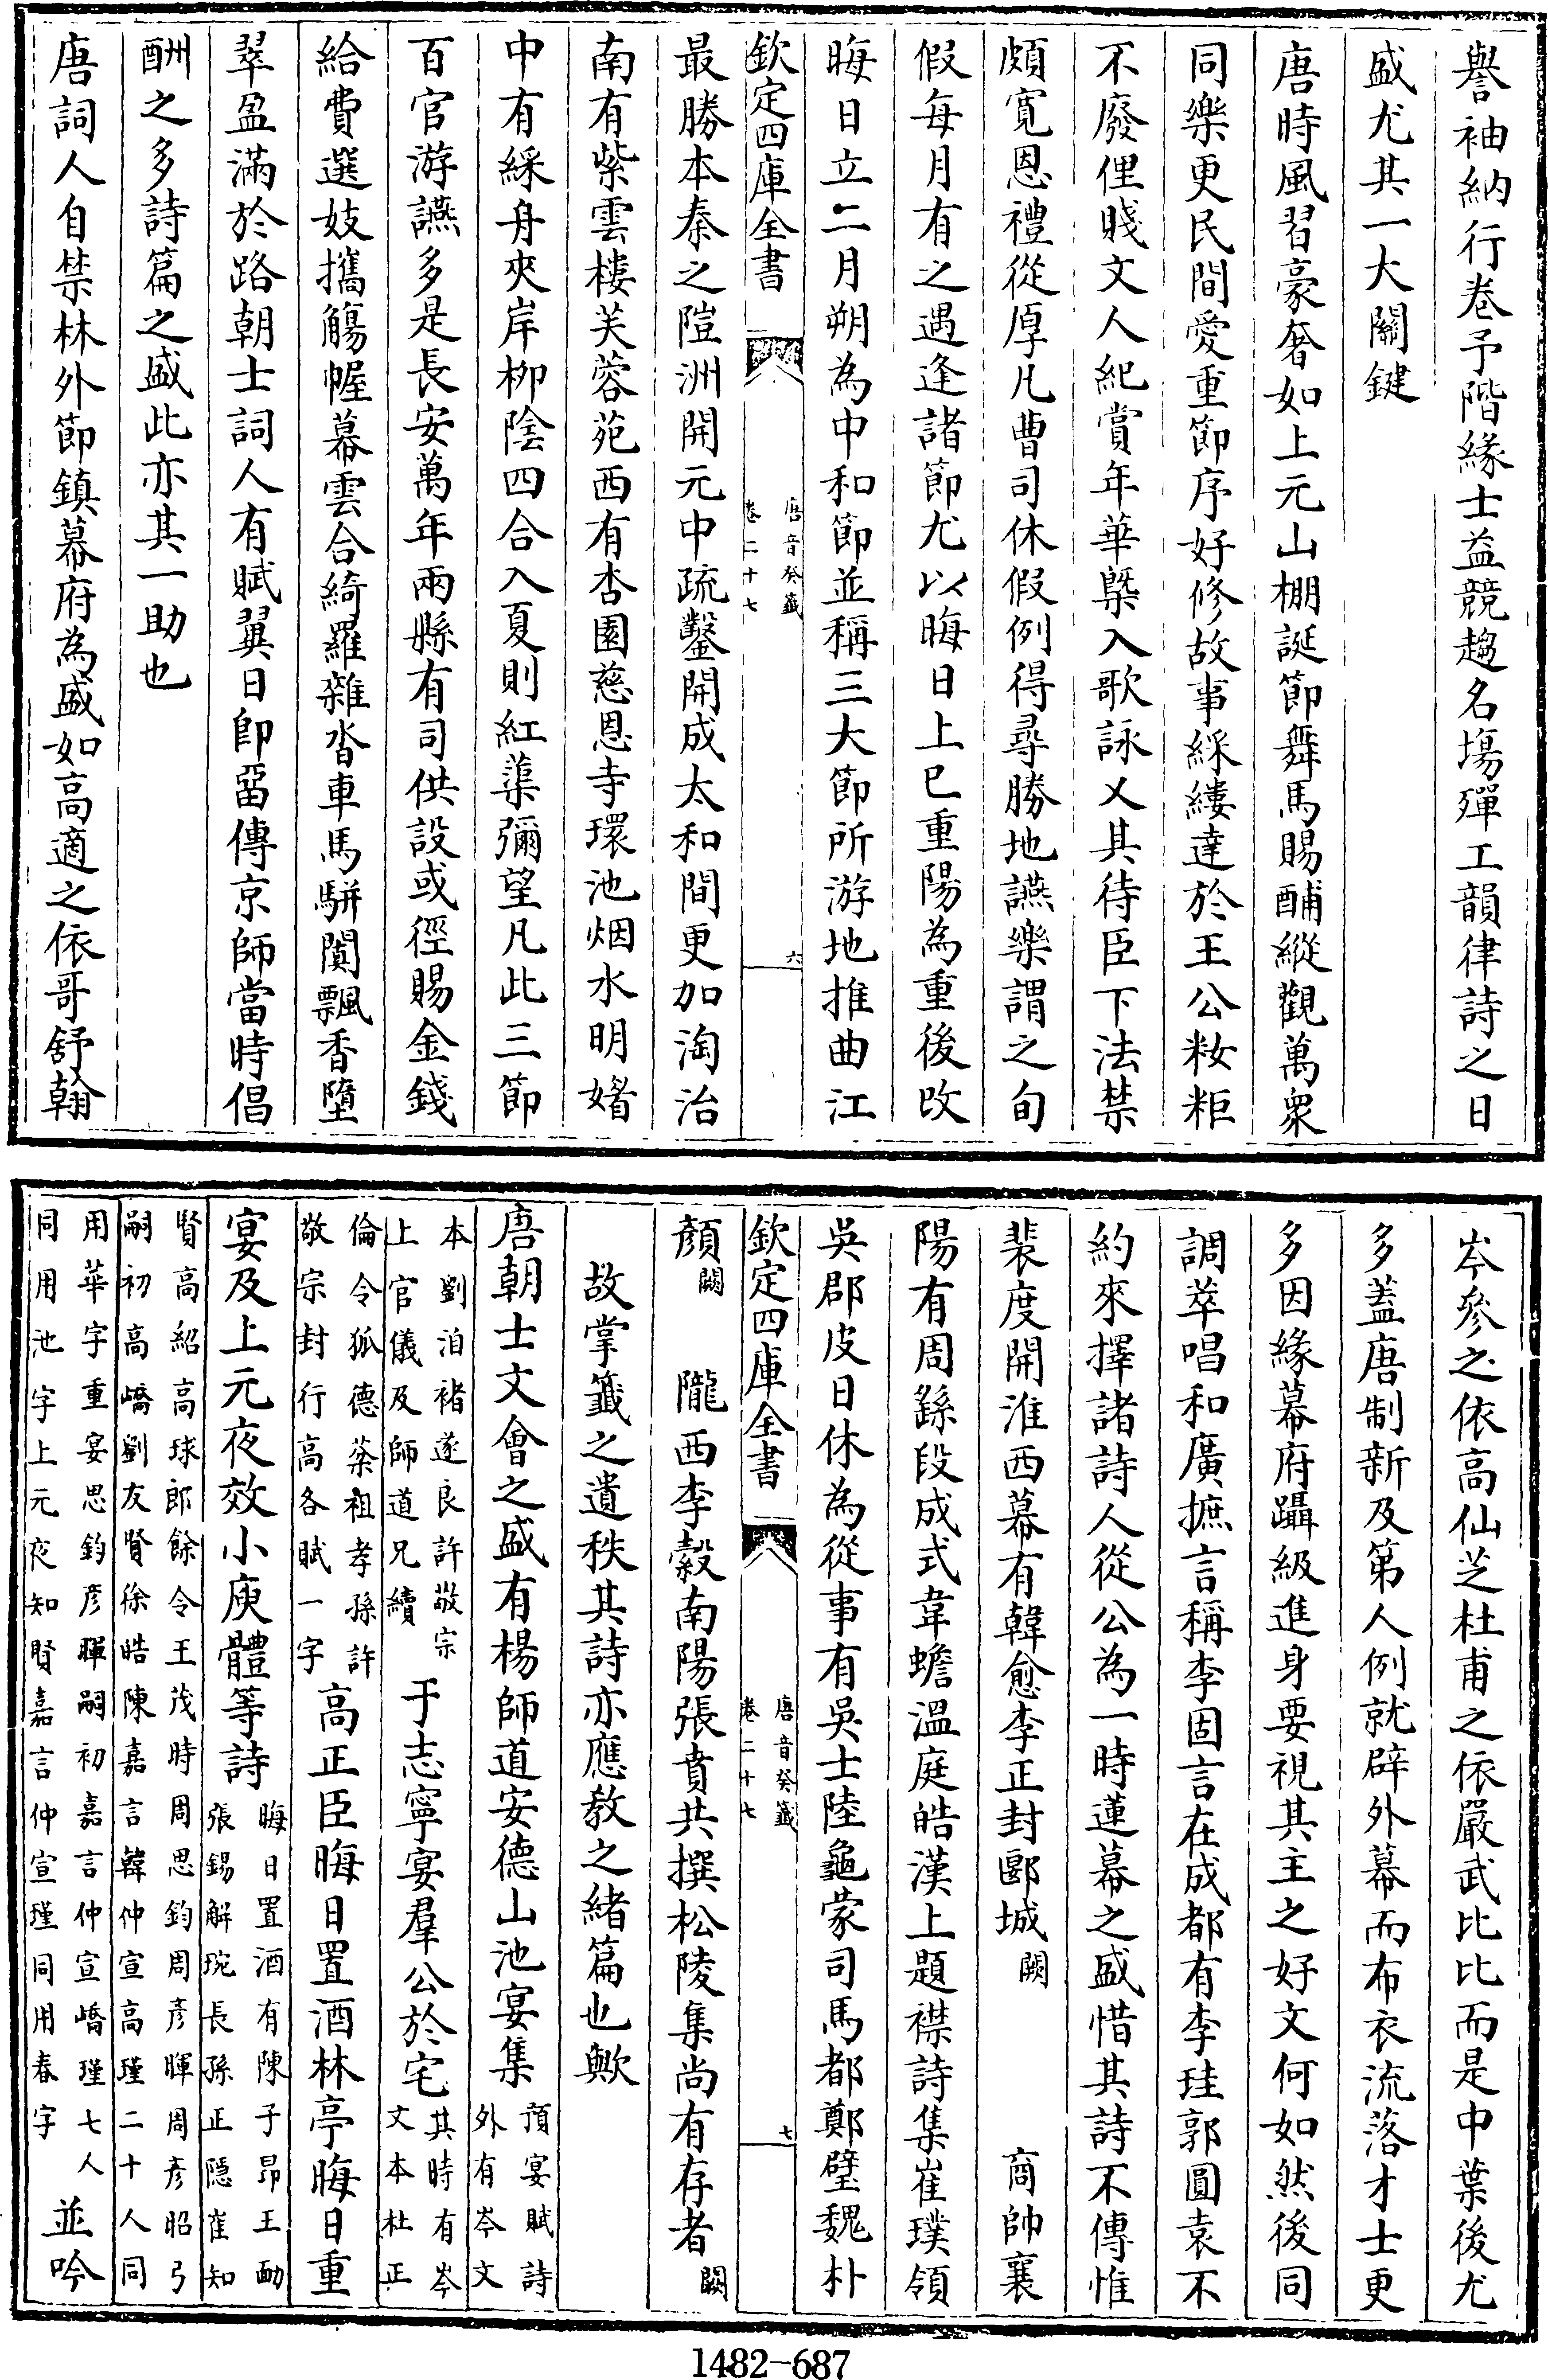 譽袖納行卷予階緣士益競趨名塲殫工韻律詩之日
盛尤其一大關鍵
唐時風習豪奢如上元山棚誕節舞馬賜酺縱觀萬衆
同樂更民間愛重節序好修故事綵縷達於王公粔籹
不廢俚賤文人紀賞年華槩入歌詠又其待臣下法禁
頗寛恩禮從厚凡曹司休假例得尋勝地讌樂謂之旬
假每月有之遇逢諸節尤以晦日上巳重陽為重後改
晦日立二月朔為中和節並稱三大節所游地推曲江
欽定四庫全書
唐音癸籤
卷二十七
六
最勝本秦之隑洲開元中疏鑿開成太和間更加淘治
南有紫雲樓芙蓉苑西有杏園慈恩寺環池烟水明媎
中有綵舟夾岸柳陰四合入夏則紅蕖彌望凡此三節
百官游讌多是長安萬年兩縣有司供設或徑賜金錢
給費選妓攜觴幄幕雲合綺羅雜沓車馬駢闐飄香墮
翠盈滿於路朝士詞人有賦翼日即畱傳京師當時倡
酬之多詩篇之盛此亦其一助也
唐詞人自禁林外節鎮幕府為盛如高適之依哥舒翰
岑參之依高仙芝杜甫之依嚴武比比而是中葉後尤
多蓋唐制新及第人例就辟外幕而布衣流落才士更
多因緣幕府躡級進身要視其主之好文何如然後同
調萃唱和廣摭言稱李固言在成都有李珪郭圓袁不
約來擇諸詩人從公為一時蓮幕之盛惜其詩不傳惟
裴度開淮西幕有韓愈李正封郾城闕 商帥襄
陽有周繇段成式韋蟾溫庭皓漢上題襟詩集崔璞領
吳郡皮日休為從事有吳士陸龜蒙司馬都鄭璧魏朴
欽定四庫全書
唐音癸籤
卷二十七
七
顏闕 隴西李縠南陽張賁共撰松陵集尚有存者闕
故掌籤之遺秩其詩亦應教之緒篇也歟
唐朝士文會之盛有楊師道安德山池宴集預宴賦詩外有岑文
本劉洎褚遂良許敬宗上官儀及師道兄續于志寧宴羣公於宅其時有岑文本杜正
倫令狐德棻祖孝孫許敬宗封行高各賦一字高正臣晦日置酒林亭晦日重
宴及上元夜效小庾體等詩晦日置酒有陳子昂王勔張錫解琬長孫正隱崔知
賢高紹高球郎餘令王茂時周思鈞周彥暉周彥昭弓嗣初高嶠劉友賢徐皓陳嘉言韓仲宣高瑾二十人同
用華字重宴思鈞彥暉嗣初嘉言仲宣嶠瑾七人同用池字上元夜知賢嘉言仲宣瑾同用春字並吟
1482-687